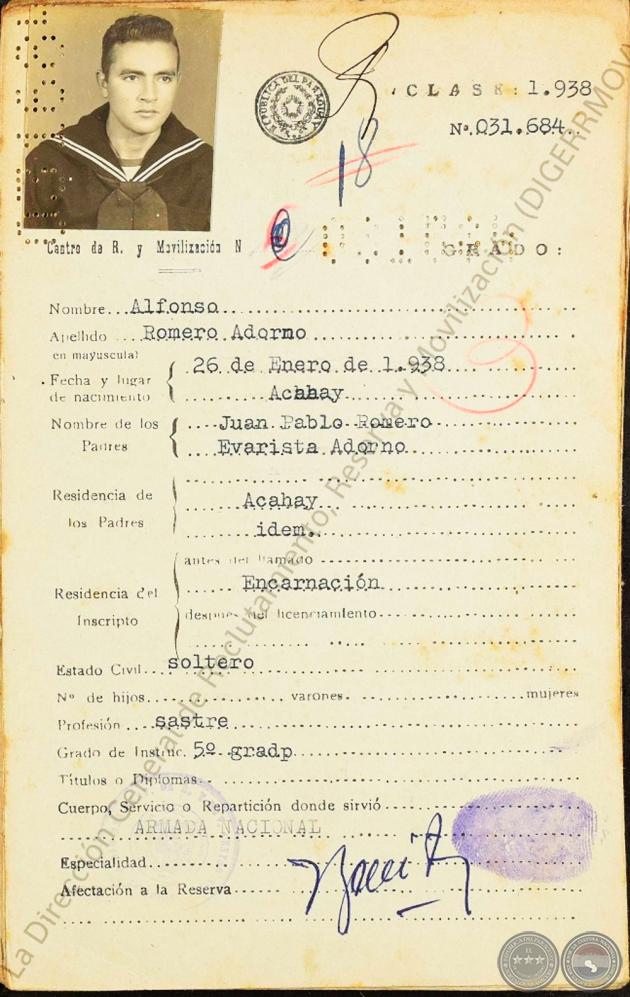 REPUBLICA DEL PARAGUAY
CLASE: 1.938
Nº. 031.684
18
Centro de R. y Movilización N
GRADO:
Nombre Alfonso
Apellido Romero Adorno
en mayuscula)
Fecha y lugar de nacimiento 26 de Enero de 1.938
Acahay
Nombre de los Padres Juan Pablo Romero
Evarista Adorno
Residencia de los Padres Acahay
idem.
Residencia del Inscripto antes del llamado
Encarnación
después del licenciamiento
Estado Civil soltero
Nº de hijos varones mujeres
Profesión sastre
Grado de Instruc. 5º gradp
Títulos o Diplomas
Cuerpo, Servicio o Repartición donde sirvió
ARMADA NACIONAL
Especialidad
Afectación a la Reserva
La Dirección General de Reclutamiento, Reserva y Movilización (DIGERRMOVI